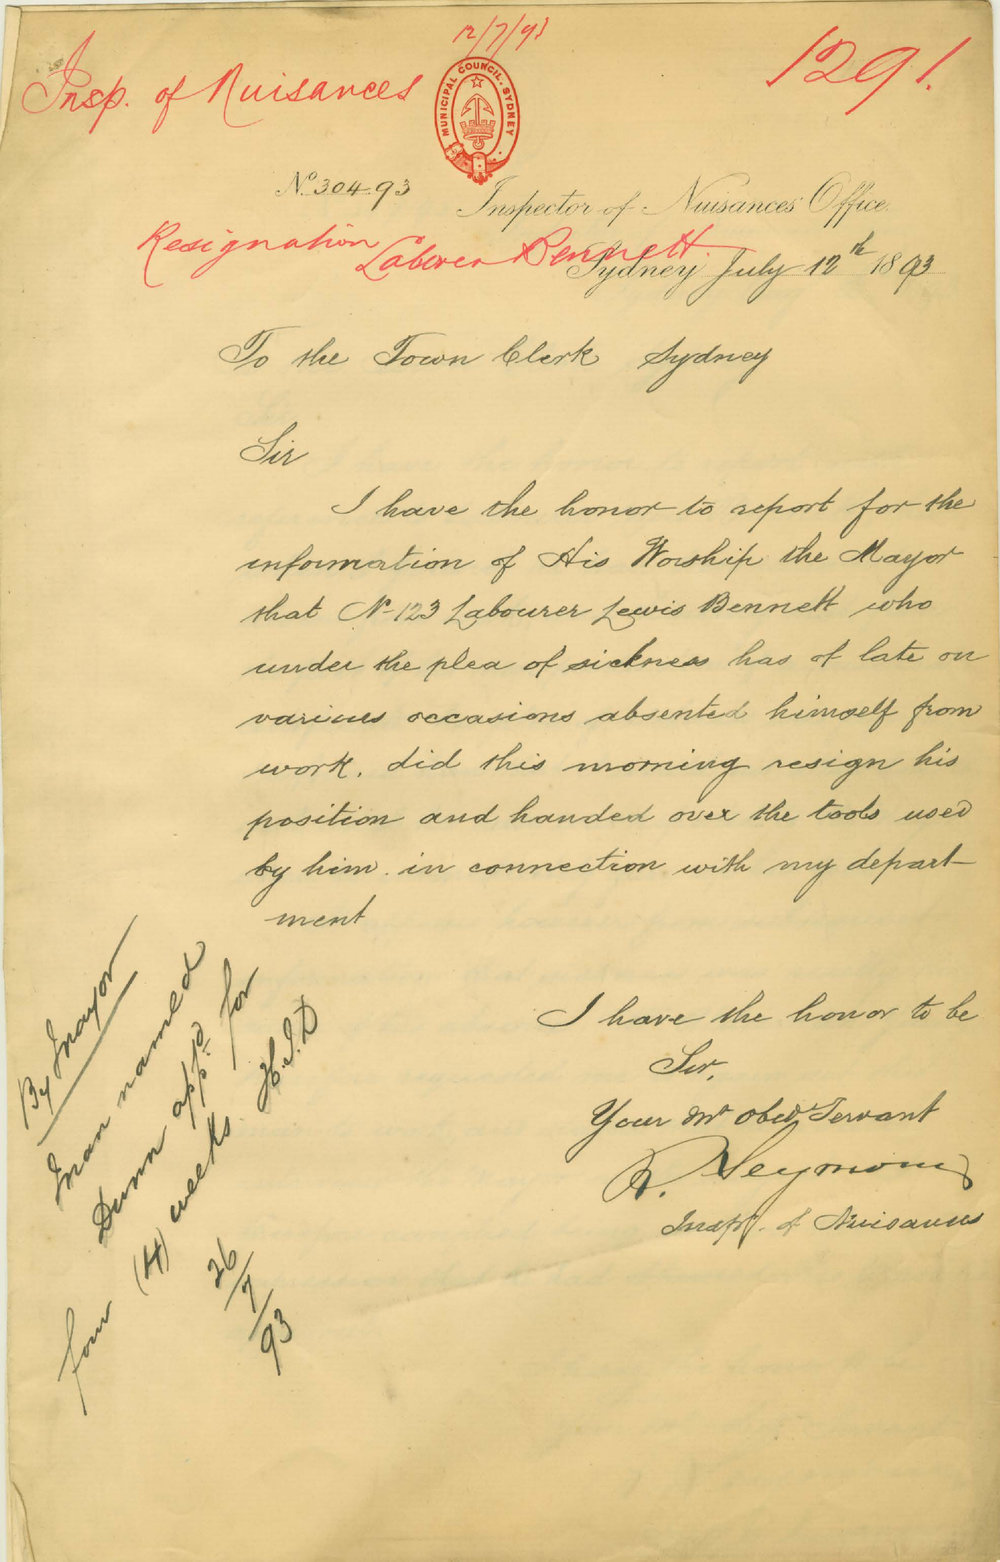 12/7/93
Insp. of Nuisances
1291.
MUNICIPAL COUNCIL. SYDNEY
No. 304.93
Inspector of Nuisances' Office.
Resignation Laborer Bennett.
Sydney July 12th 1893
To the Town Clerk Sydney
Sir
I have the honor to report for the
information of His Worship the Mayor
that No 123 Labourer Lewis Bennett who
under the plea of sickness has of late on
various occasions absented himself from
work, did this morning resign his
position and handed over the tools used
by him in connection with my depart-
ment
I have the honor to be
Sir,
Your Mt Obed Servant
R. Seymour
Inspr. of Nuisances
By Mayor
Man named
Dunn appd for
four (4) weeks. H.J.D
26/7/93